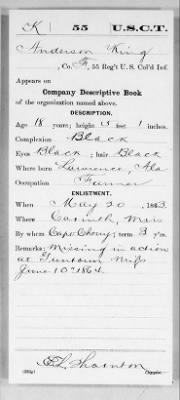 K 55 U.S.C.T.
Anderson King
, Co. F, 55 Reg't U. S. Col'd Inf.
Appears on
Company Descriptive Book
of the organization named above.
DESCRIPTION.
Age 18 years; height 5 feet 1 inches.
Complexion Black
Eyes Black; hair Black
Where born Lawrence, Ala
Occupation Farmer
ENLISTMENT.
When May 20, 1863
Where Corinth, Miss
By whom Capt. ; term 3 y'rs.
Remarks: Missing in action
at Guntown Miss
June 10" 1864
Thornton
Copyist.